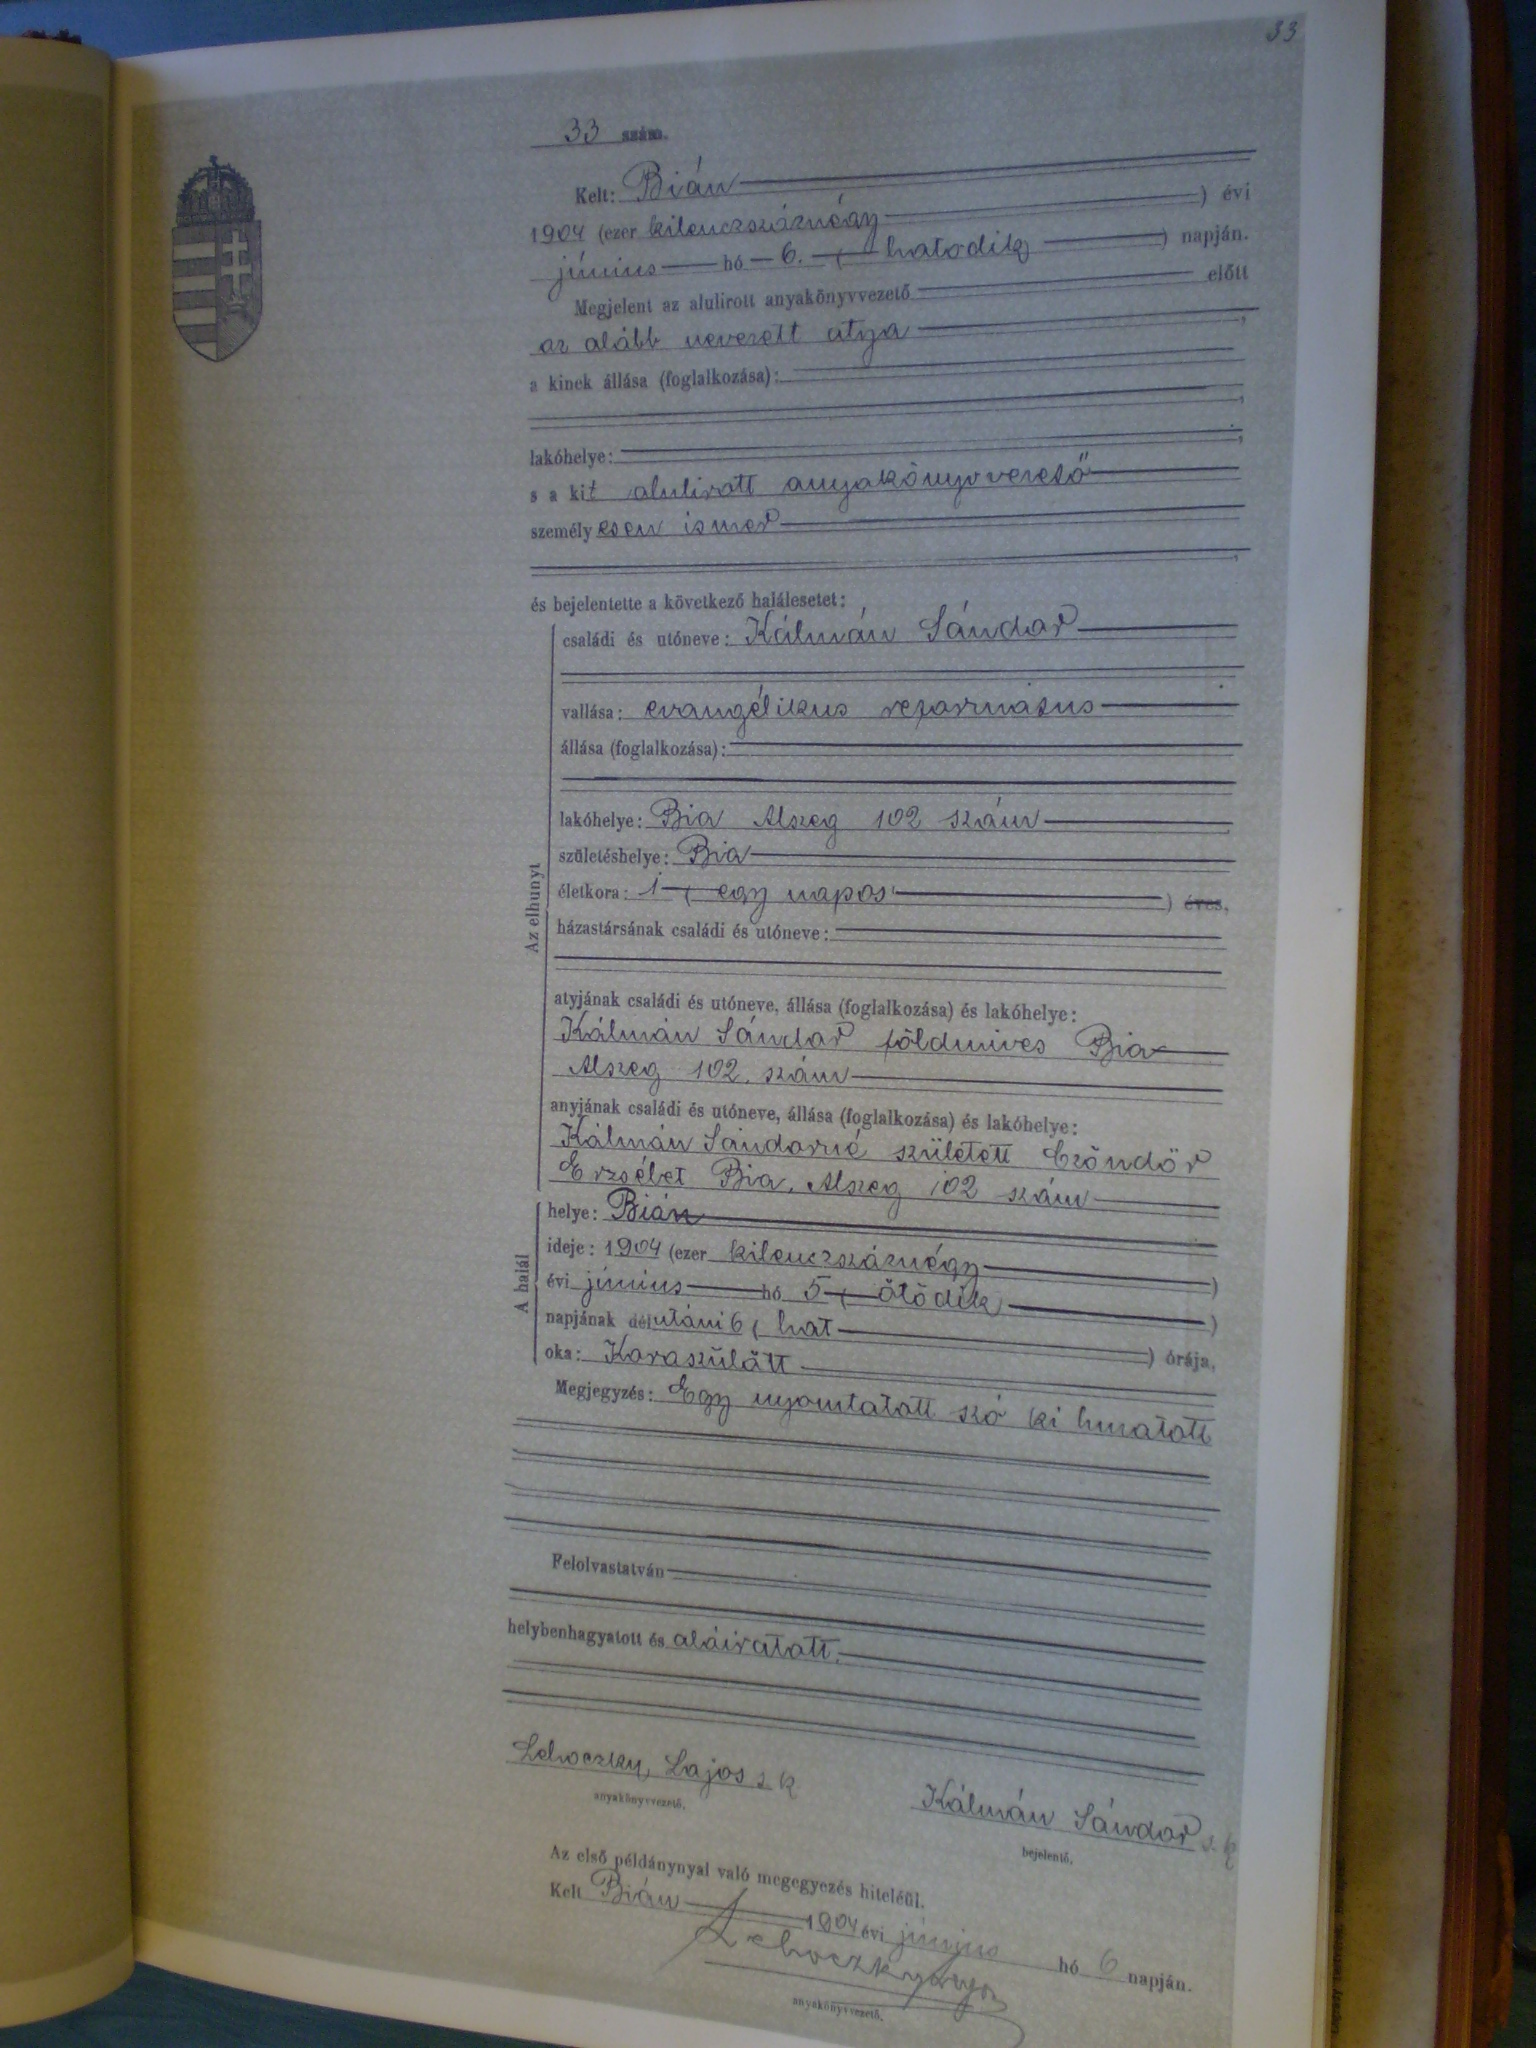 33
33 szám.
Kelt: Bián
1904 (ezer kilenczszáznégy ) évi
június hó 6. ( hatodik ) napján.
Megjelent az alulirott anyakönyvvezető előtt
az alább nevezett atya ,
a kinek állása (foglalkozása):
,
lakóhelye: ,
s a kit alulirott anyakönyvvezető
személyesen ismer
,
és bejelentette a következő halálesetet:
Az elhunyt
családi és utóneve: Kálmán Sándor
vallása: evangélikus református
állása (foglalkozása):
lakóhelye: Bia Alszeg 102 szám
születéshelye: Bia
életkora: 1 ( egy napos ) éves,
házastársának családi és utóneve:
atyjának családi és utóneve, állása (foglalkozása) és lakóhelye:
Kálmán Sándor földmives Bia
Alszeg 102. szám
anyjának családi és utóneve, állása (foglalkozása) és lakóhelye:
Kálmán Sándorné született Czöndör
Erzsébet Bia, Alszeg 102 szám
A halál
helye: Bián
ideje: 1904 (ezer kilenczszáznégy )
évi június hó 5 ( ötödik )
napjának délutáni 6 ( hat ) órája,
oka: Koraszülött
Megjegyzés: Egy nyomtatott szó ki huzatott
Felolvastatván
helybenhagyatott és aláiratott.
Lehoczky Lajos s. k
anyakönyvvezető.
Kálmán Sándor s. k
bejelentő.
Az első példánynyal való megegyezés hiteléül.
Kelt Bián 1904 évi június hó 6 napján.
Lehoczky Lajos
anyakönyvvezető.